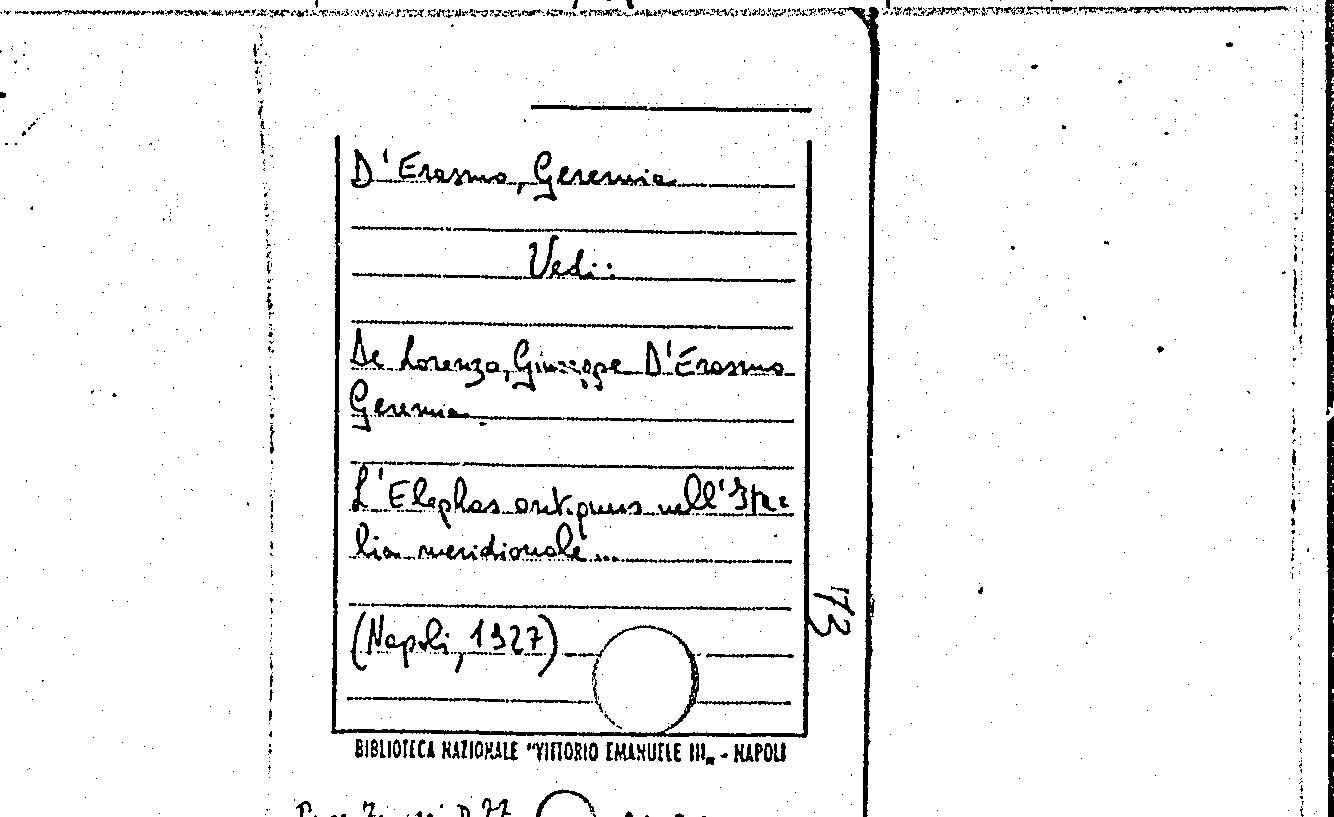 D'Erasmo, Geremia
Vedi:
De Lorenzo, Giuseppe D'Erasmo
Geremia.
L'Elephas antiquus nell'Ita=
lia meridionale...
(Napoli, 1927)
73
BIBLIOTECA NAZIONALE "VITTORIO EMANUELE III„ - NAPOLI